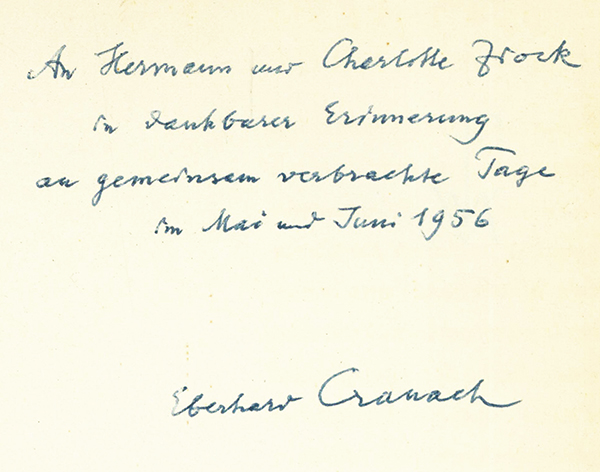 An Hermann und Charlotte Zrock
in dankbarer Erinnerung
an gemeinsam verbrachte Tage
im Mai und Juni 1956
Eberhard Cranach